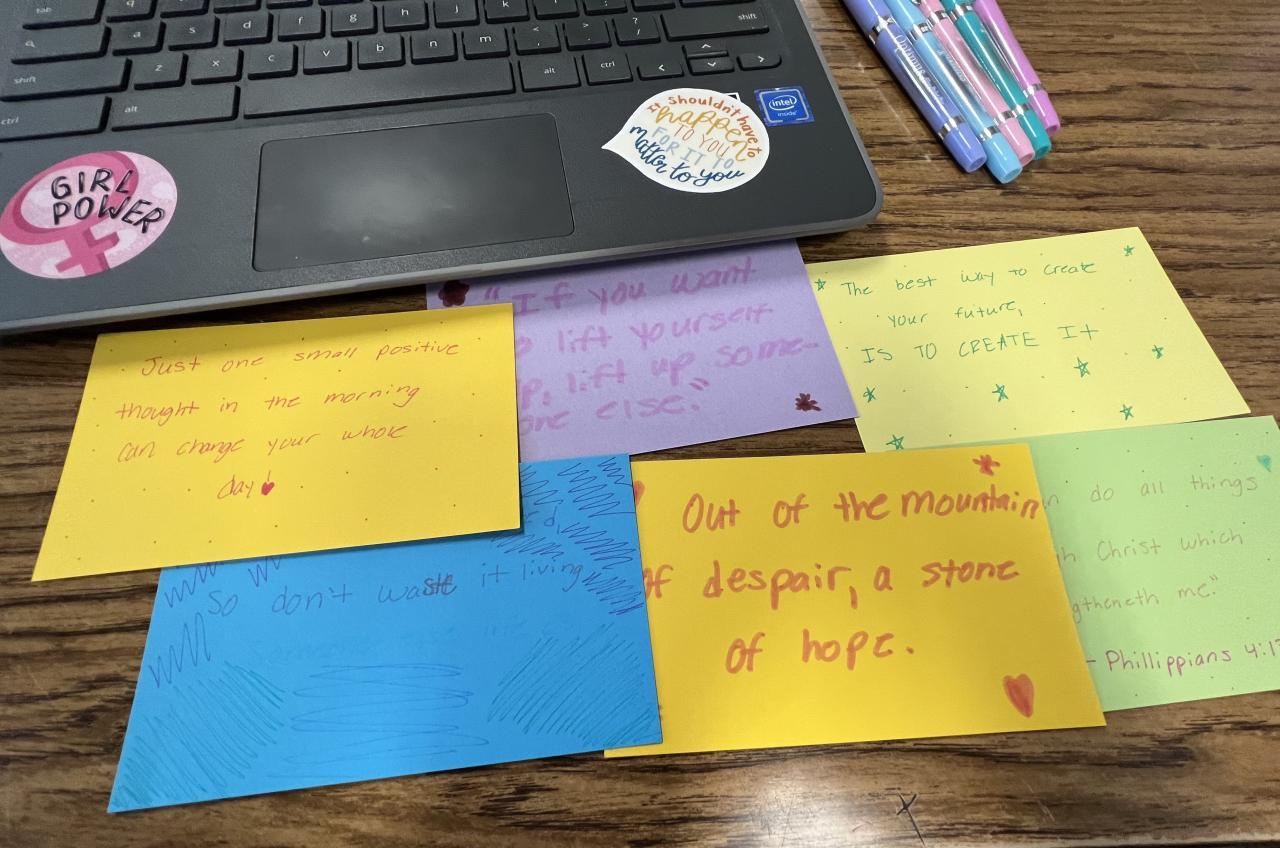 tab
q
a
s
d
f
g
h
j
k
l
shift
z
x
c
v
b
n
m
shift
ctrl
alt
alt
ctrl
GIRL
POWER
It shouldn't have to
happen
TO YOU
FOR IT TO
matter to you
intel
inside
"If you want
lift yourself
lift up some-
one else."
The best way to create
your future,
IS TO CREATE It
Just one small positive
thought in the morning
can change your whole
day
So don't waste it living
Out of the mountain
of despair, a stone
of hope.
do all things
Christ which
me."
- Phillippians